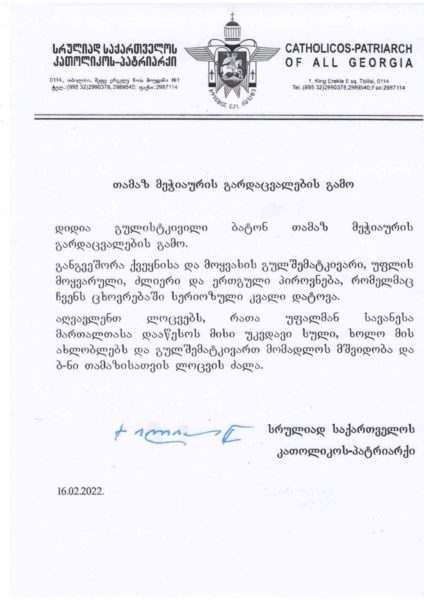 სრულიად საქართველოს
კათოლიკოს-პატრიარქი
0114, თბილისი, მეფე ერეკლე II-ის მოედანი №1
ტელ.:(995 32)2990378,2989540; ფაქსი:2987114
CATHOLICOS-PATRIARCH
OF ALL GEORGIA
1, King Erekle II sq. Tbilisi, 0114
Tel.:(995 32)2990378,2989540;Fax:2987114
თამაზ მეჭიაურის გარდაცვალების გამო
დიდია გულისტკივილი ბატონ თამაზ მეჭიაურის
გარდაცვალების გამო.
განგვეშორა ქვეყნისა და მოყვასის გულშემატკივარი, უფლის
მოყვარული, ძლიერი და ერთგული პიროვნება, რომელმაც
ჩვენს ცხოვრებაში სერიოზული კვალი დატოვა.
აღვავლენთ ლოცვებს, რათა უფალმან სავანესა
მართალთასა დააწესოს მისი უკვდავი სული, ხოლო მის
ახლობლებს და გულშემატკივართ მომადლოს მშვიდობა და
ბ-ნი თამაზისათვის ლოცვის ძალა.
სრულიად საქართველოს
კათოლიკოს-პატრიარქი
16.02.2022.